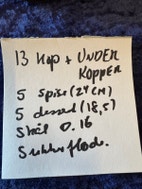 13 Kop + UNDER
KOPPER
5 Spise (24 CM)
5 dessert (18,5)
Skål D. 16
Sukker fløde.